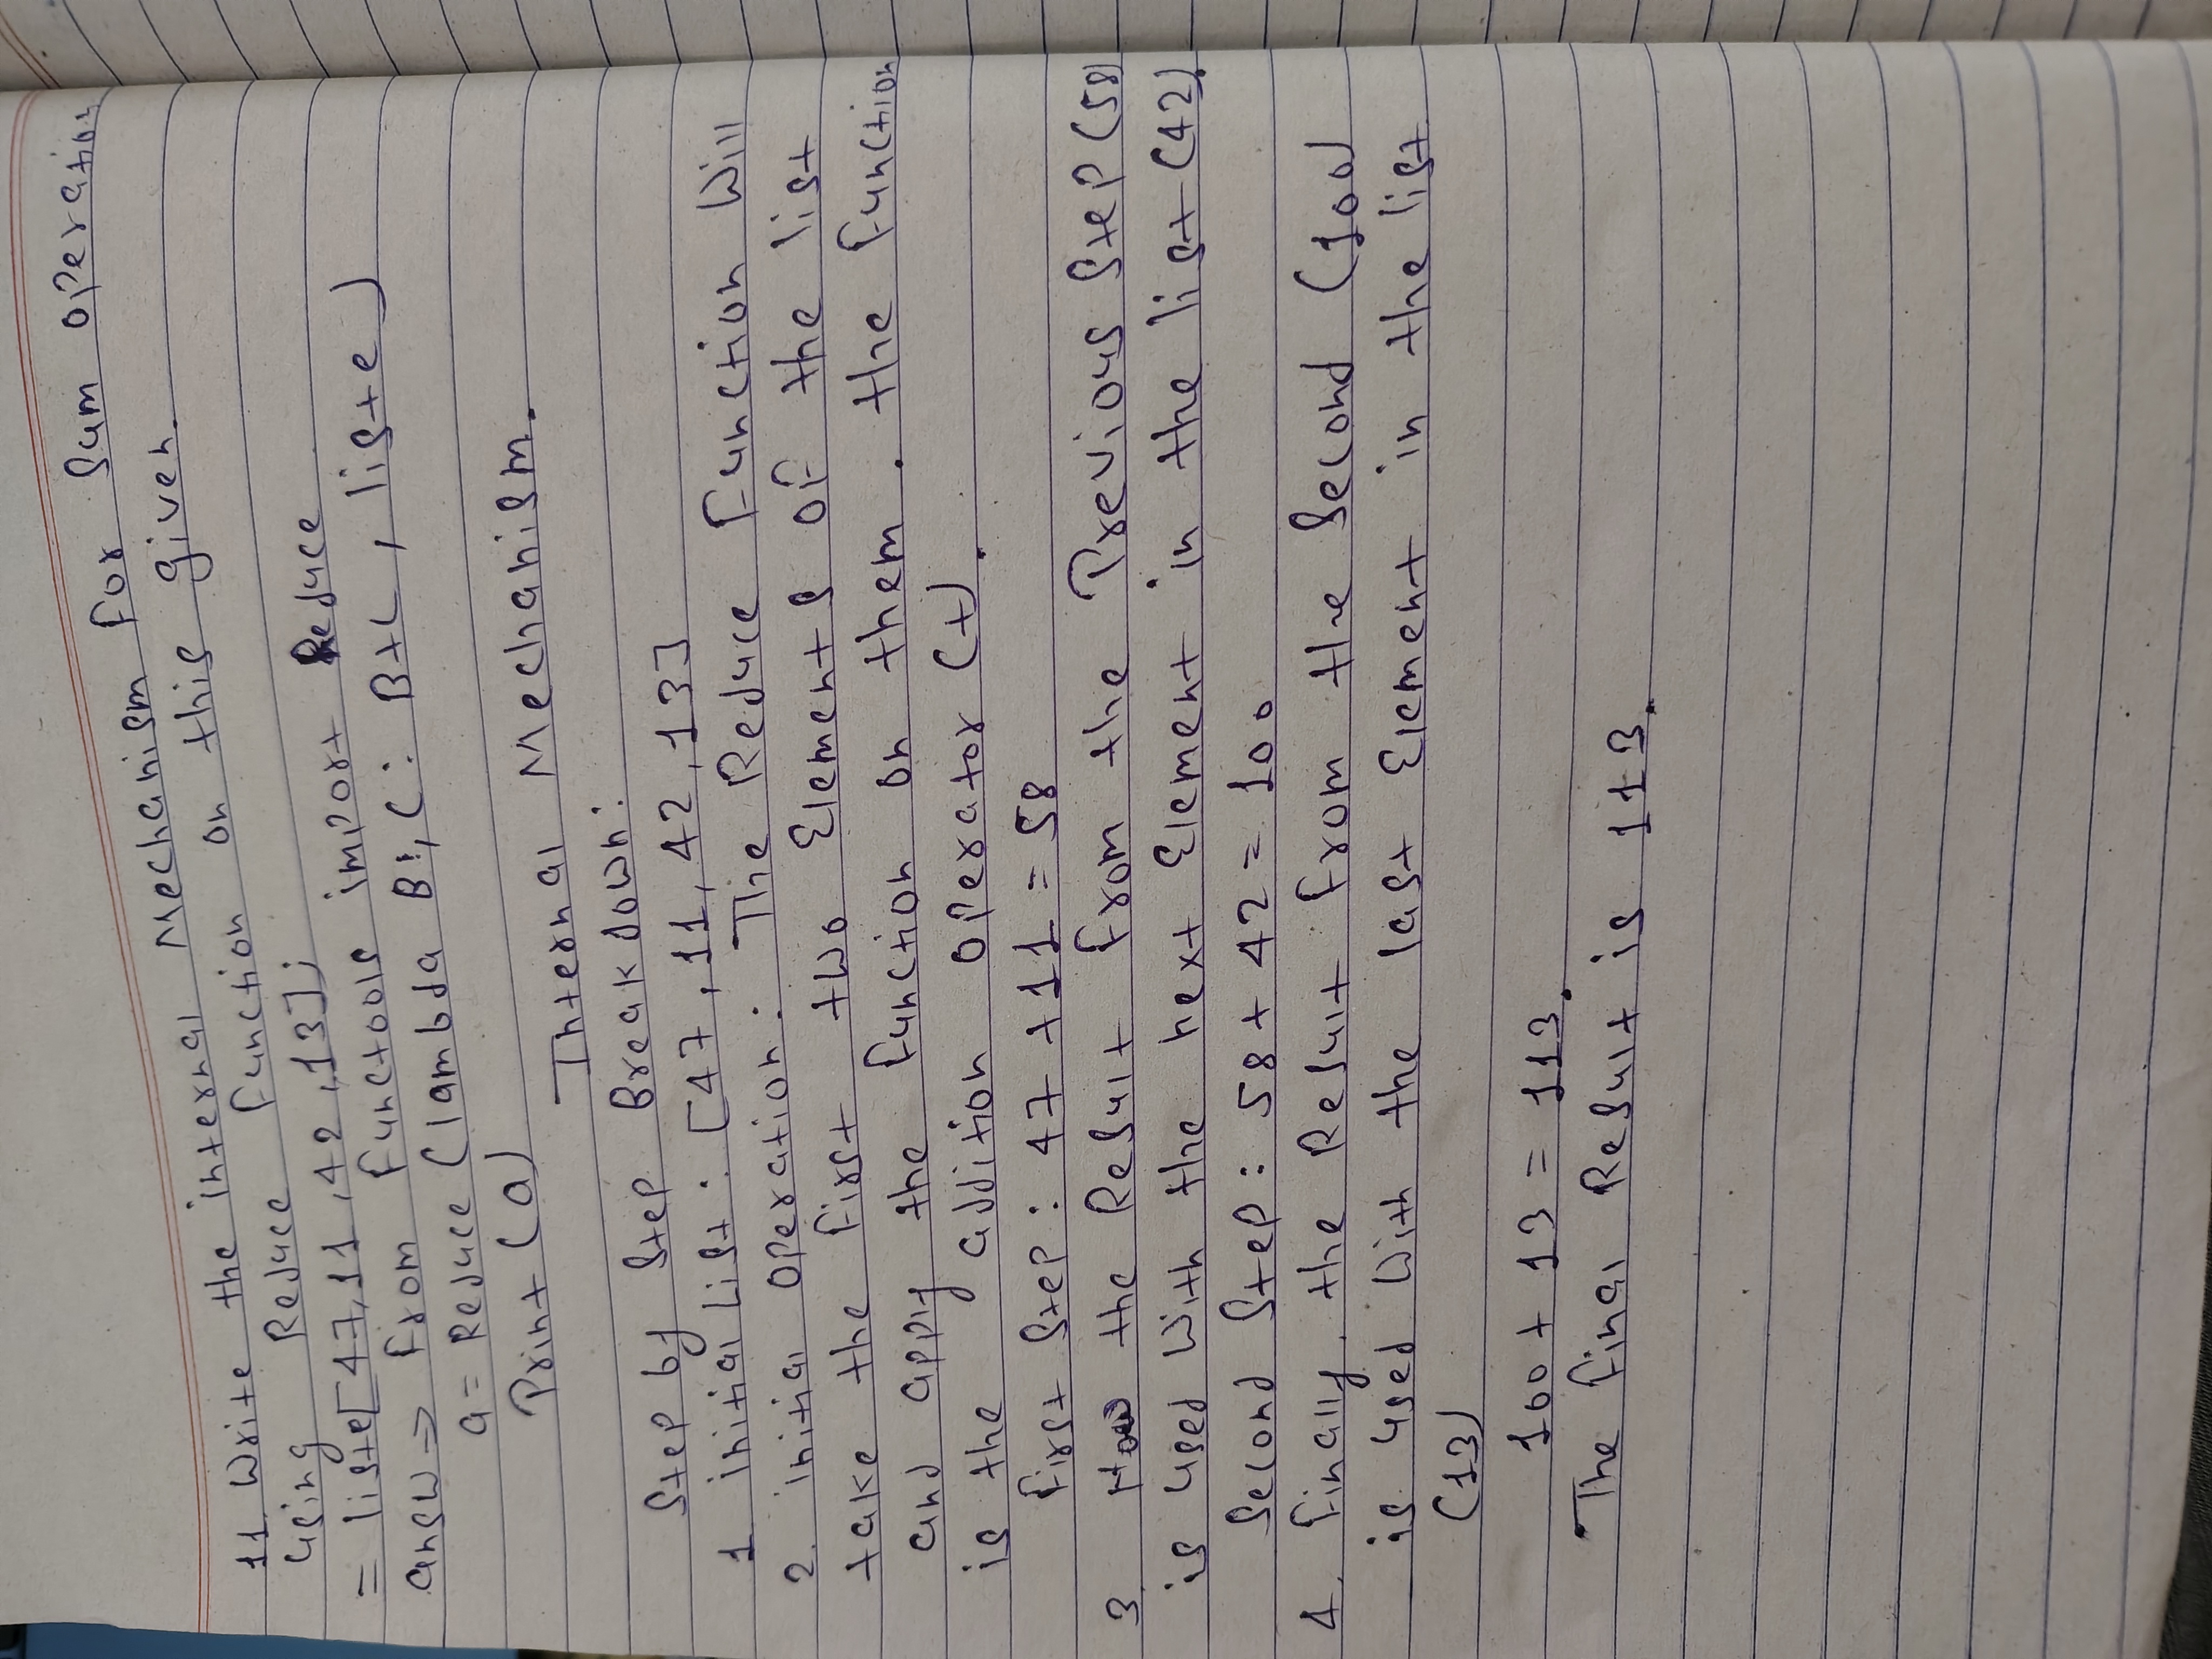 11. Write the internal Mechanism for Sum operation
using Reduce function on this given.
= liste[47,11,42,13];
answ → from functools import Reduce
a = Reduce (lambda B, C: B+C, liste)
Print (a)
Internal Mechanism.
Step by Step Breakdown:
1 initial List: [47, 11, 42, 13]
2. initial operation: The Reduce Function Will
take the first two Elements of the list
and apply the function on them. the function
is the addition operator (+).
first Step: 47 + 11 = 58
3. Now the Result from the Previous Step (58)
is used With the next Element in the list (42).
Second Step: 58 + 42 = 100
4. finally, the Result from the Second (100)
is used With the last Element in the list
(13)
100 + 13 = 113.
The final Result is 113.